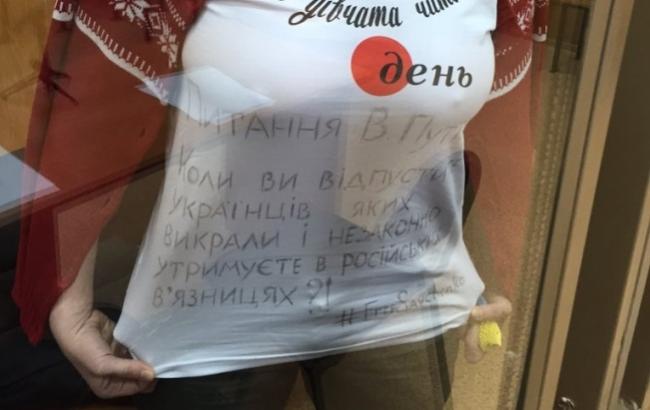 дівчата чита
день
Питання В. Пут
Коли ви відпусти
українців яких
викрали і незаконно
утримуєте в російських
в'язницях?!
# FreeSavchenko